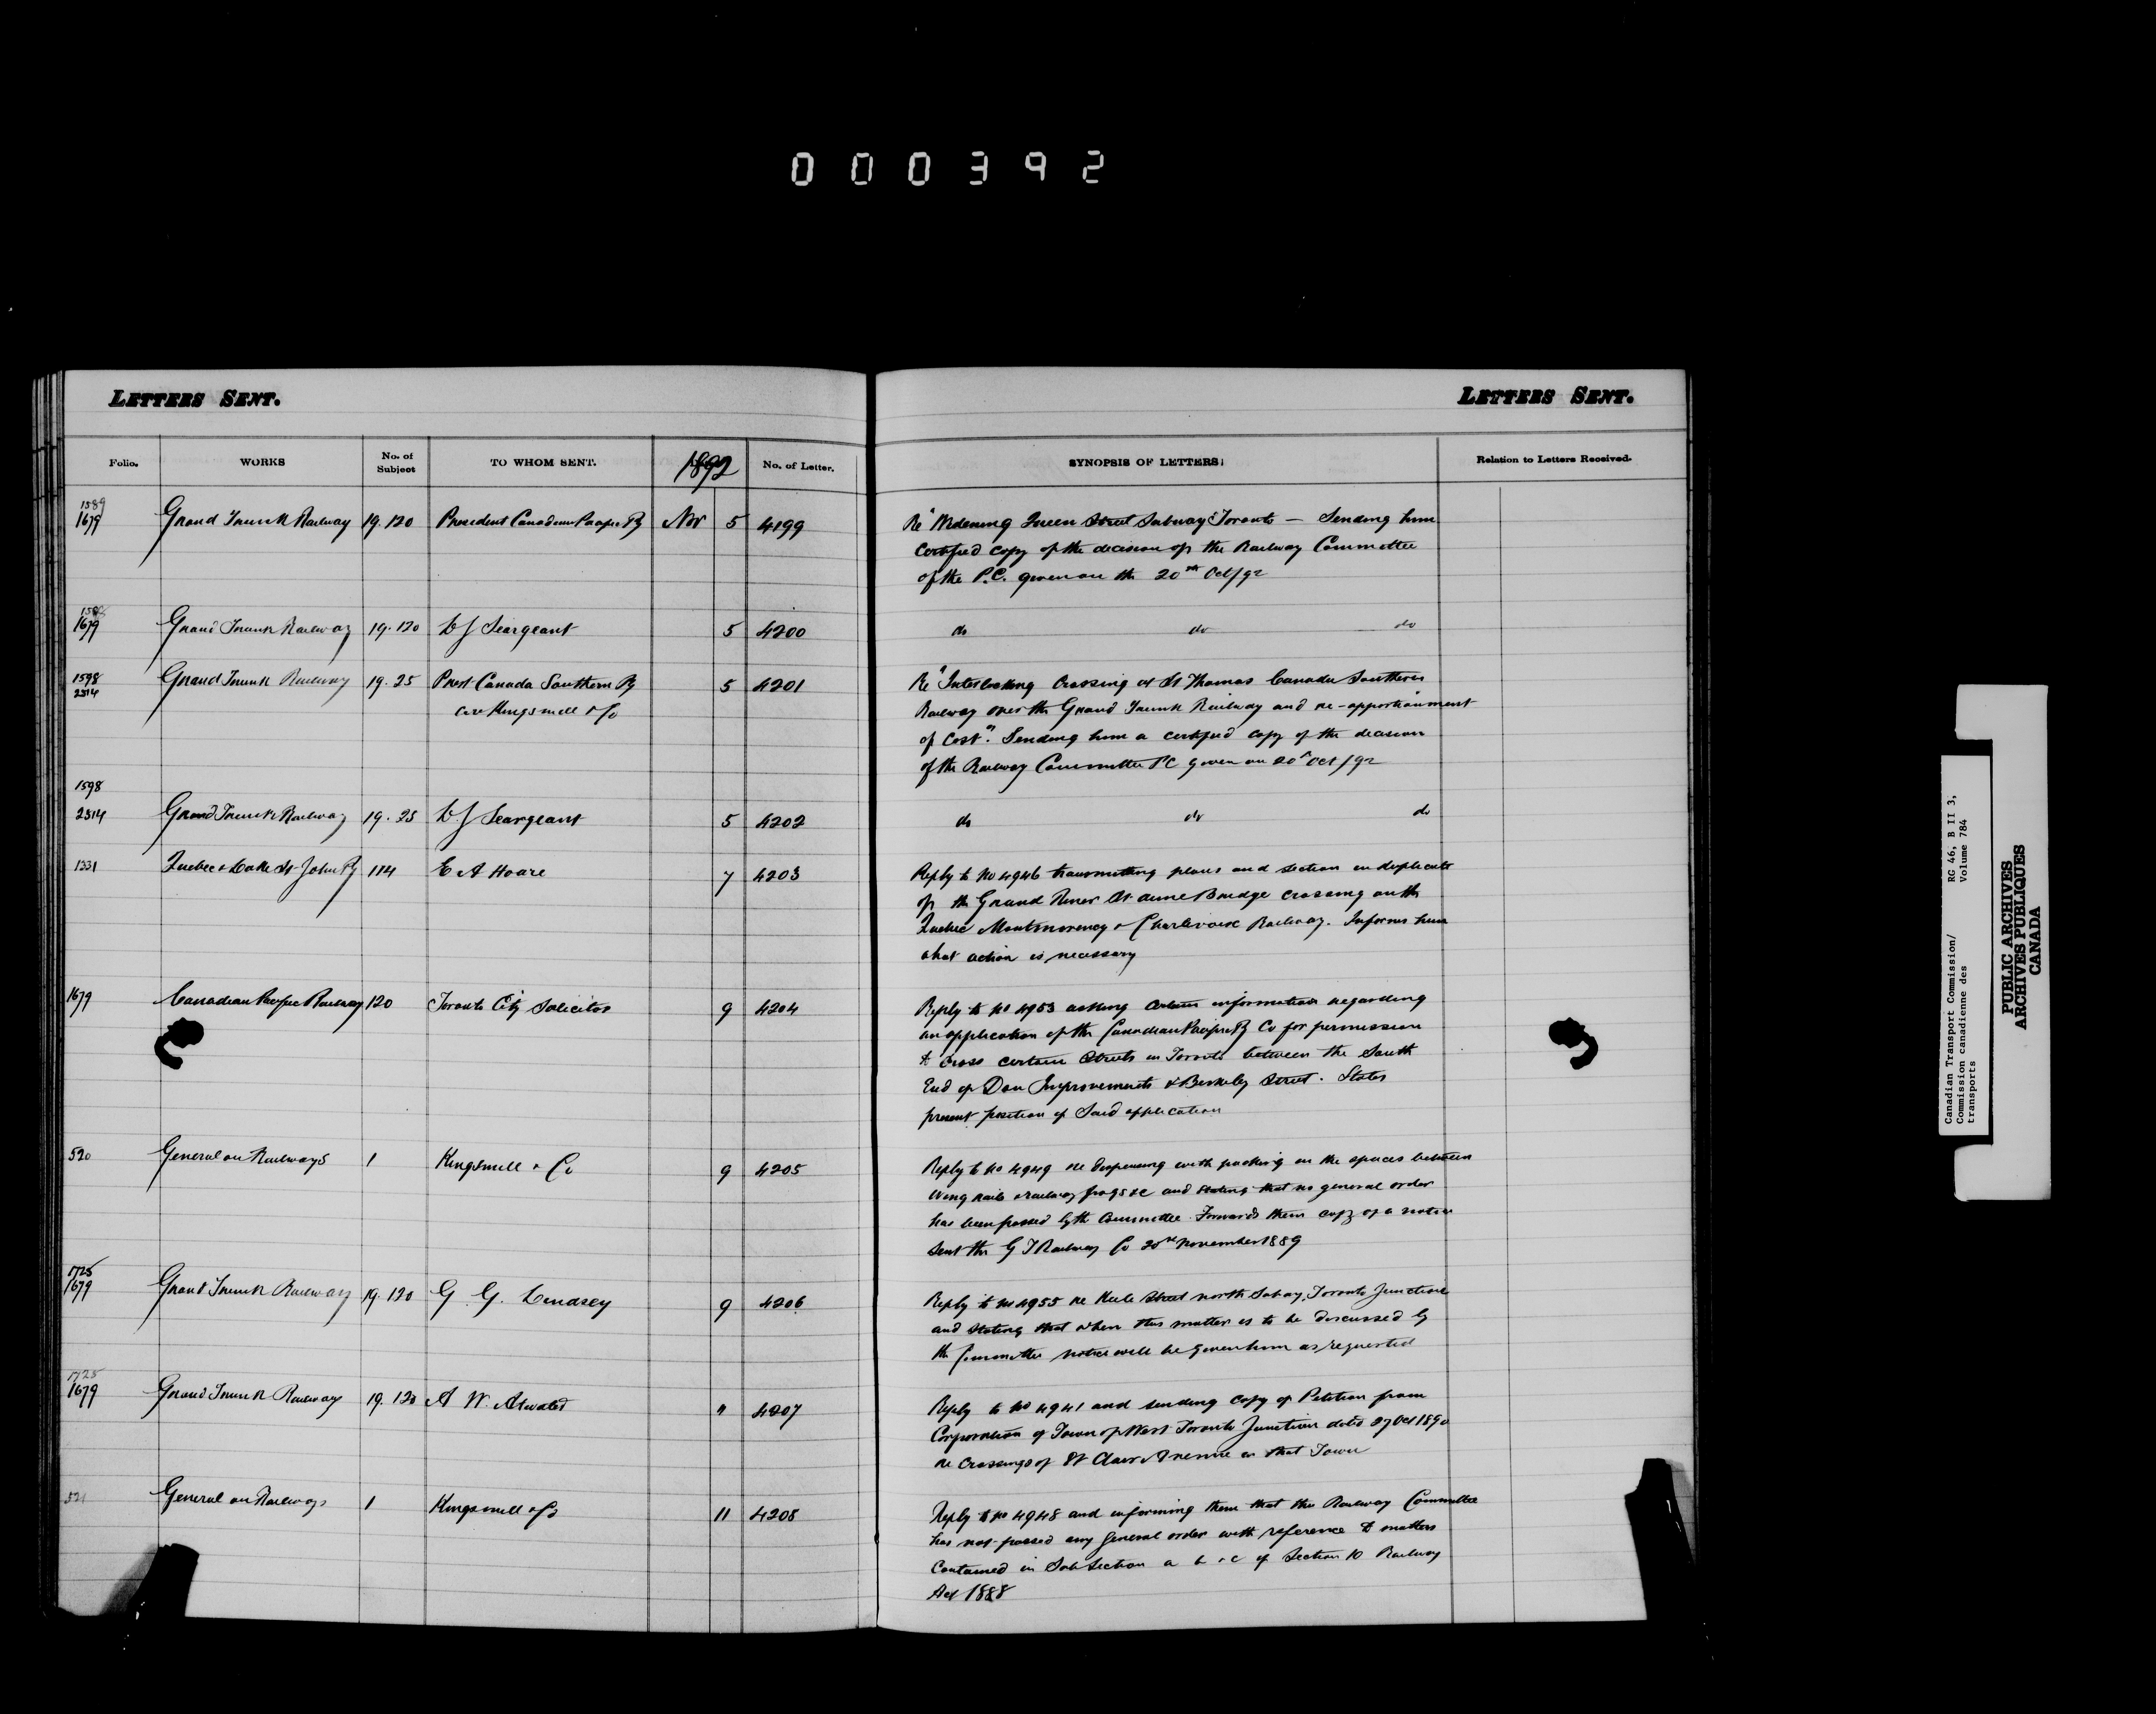 000392
LETTERS SENT.
Folio.
WORKS
No. of Subject
TO WHOM SENT.
1892
No. of Letter.
1589
1679 Grand Trunk Railway 19.120 President Canadian Pacific Ry Nov 5 4199
1679 Grand Trunk Railway 19.120 L J Seargeant 5 4200
1598
2314 Grand Trunk Railway 19.25 Prest Canada Southern Ry 5 4201
c/o Kingsmill & Co
1598
2314 Grand Trunk Railway 19.25 L J Seargeant 5 4202
1331 Quebec & Lake St John Ry 114 E A Hoare 7 4203
1679 Canadian Pacific Railway 120 Toronto City Solicitor 9 4204
520 General on Railways 1 Kingsmill & Co 9 4205
1725
1679 Grand Trunk Railway 19.120 G. G. Lindsey 9 4206
1725
1679 Grand Trunk Railway 19.120 A W Atwater " 4207
521 General on Railways 1 Kingsmill & Co 11 4208
LETTERS SENT.
SYNOPSIS OF LETTERS.
Relation to Letters Received.
Re "Widening Queen Street Subway Toronto — Sending him
certified copy of the decision of the Railway Committee
of the P.C. given on the 20th Oct/92
do do do
Re "Interlocking Crossing at St Thomas Canada Southern
Railway over the Grand Trunk Railway and re-apportionment
of Cost". Sending him a certified copy of the decision
of the Railway Committee PC given on 20th Oct/92
do do do
Reply to No 4946 transmitting plans and section in duplicate
of the Grand River St Anne Bridge crossing on the
Quebec Montmorency & Charlevoix Railway. Informs him
what action is necessary
Reply to No 4953 asking certain information regarding
an application of the Canadian Pacific Ry Co for permission
to cross certain Streets in Toronto between the South
End of Don Improvements & Berkeley Street. States
present position of Said application
Reply to No 4949 re dispensing with packing in the spaces between
wing rails & railway frogs &c and stating that no general order
has been passed by the Committee. Forwards them copy of a notice
sent the G T Railway Co November 1889
Reply to No 4955 re Keele Street north Subway, Toronto Junction
and stating that when this matter is to be discussed by
the Committee notice will be given him as requested
Reply to No 4941 and sending copy of Petition from
Corporation of Town of West Toronto Junction dated 27 Oct 1890
re crossings of St Clair Avenue in that Town
Reply to No 4948 and informing them that the Railway Committee
has not passed any general order with reference to matters
contained in Sub Section a b & c of Section 10 Railway
Act 1888
Canadian Transport Commission/ RG 46, B II 3,
Commission canadienne des Volume 784
transports
PUBLIC ARCHIVES
ARCHIVES PUBLIQUES
CANADA